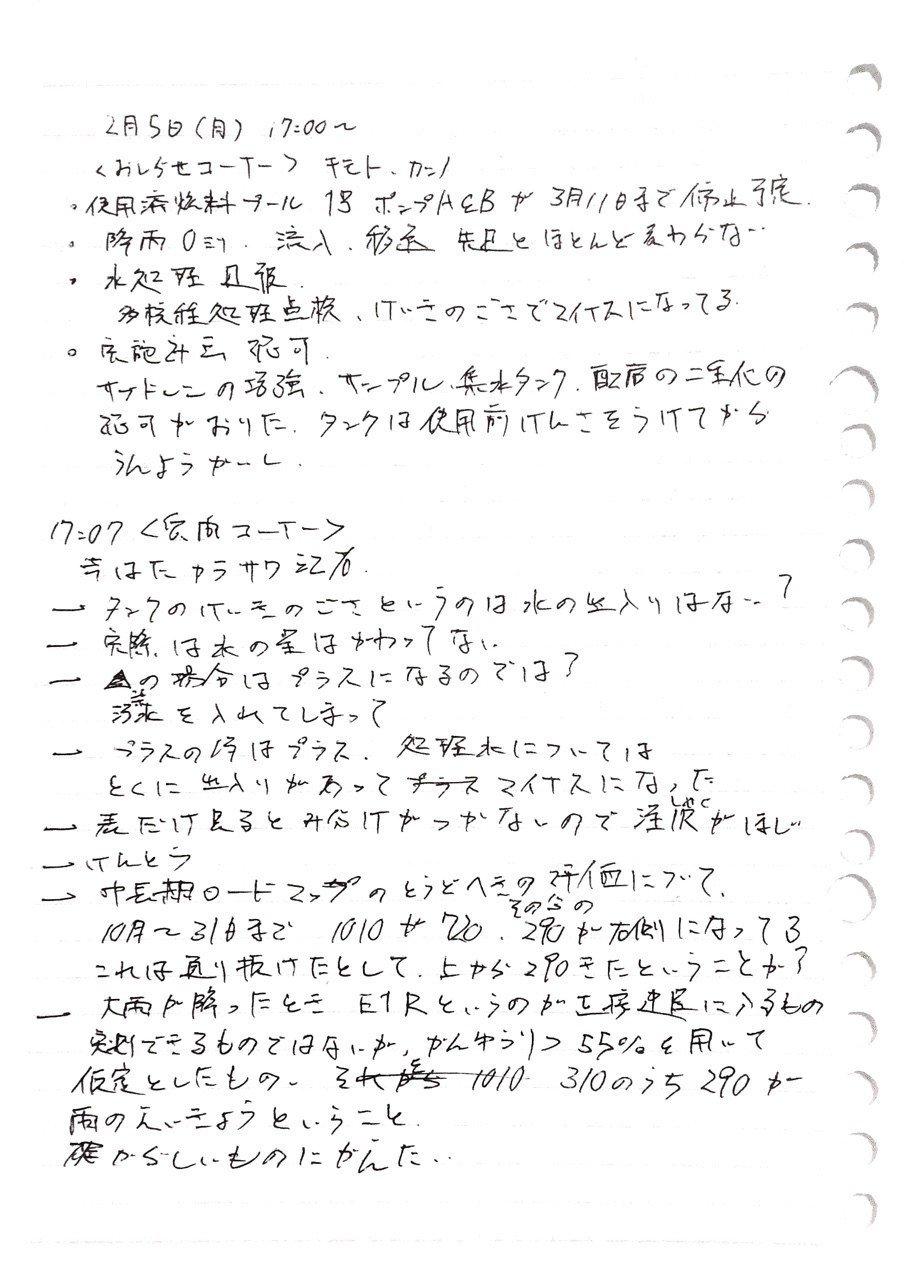 2月5日(月) 17:00〜
<おしらせコーナー> キモト、カンノ
・使用済燃料プール 1号 ポンプA&Bが 3月11日まで停止予定.
・降雨0ミリ. 流入、移送 先日とほとんど変わらない
・水処理 日報.
多核種処理点検、けいきのごさでマイナスになってる
・実施計画 認可.
サブドレンの増強、サンプル、集水タンク、配管の二重化の
認可がおりた. タンクは使用前けんさをうけてから
うんようかいし.
17:07 <質問コーナー>
カラサワ 記者.
― タンクのけいきのごさというのは水の出入りはない?
― 実際は水の量はかわってない
― の場合はプラスになるのでは?
汚染水を入れてしまって
― プラスの時はプラス. 処理水については
とくに出入りがあって プラス マイナスになった
― 表だけ見るとみ分けがつかないので 注釈がほしい
しゃく
― けんとう
― 中長期ロードマップのとうどへきの評価について.
その分の
10月〜31日まで 1010が720. 290が右側になってる
これは通り抜けたとして、上から290きたということか?
― 大雨が降ったとき というのが建屋に入るもの
実測できるものではないが、かんゆうりつ 55%を用いて
仮定としたもの、 それから 1010 310のうち 290が
雨のえいきょうということ.
確からしいものに